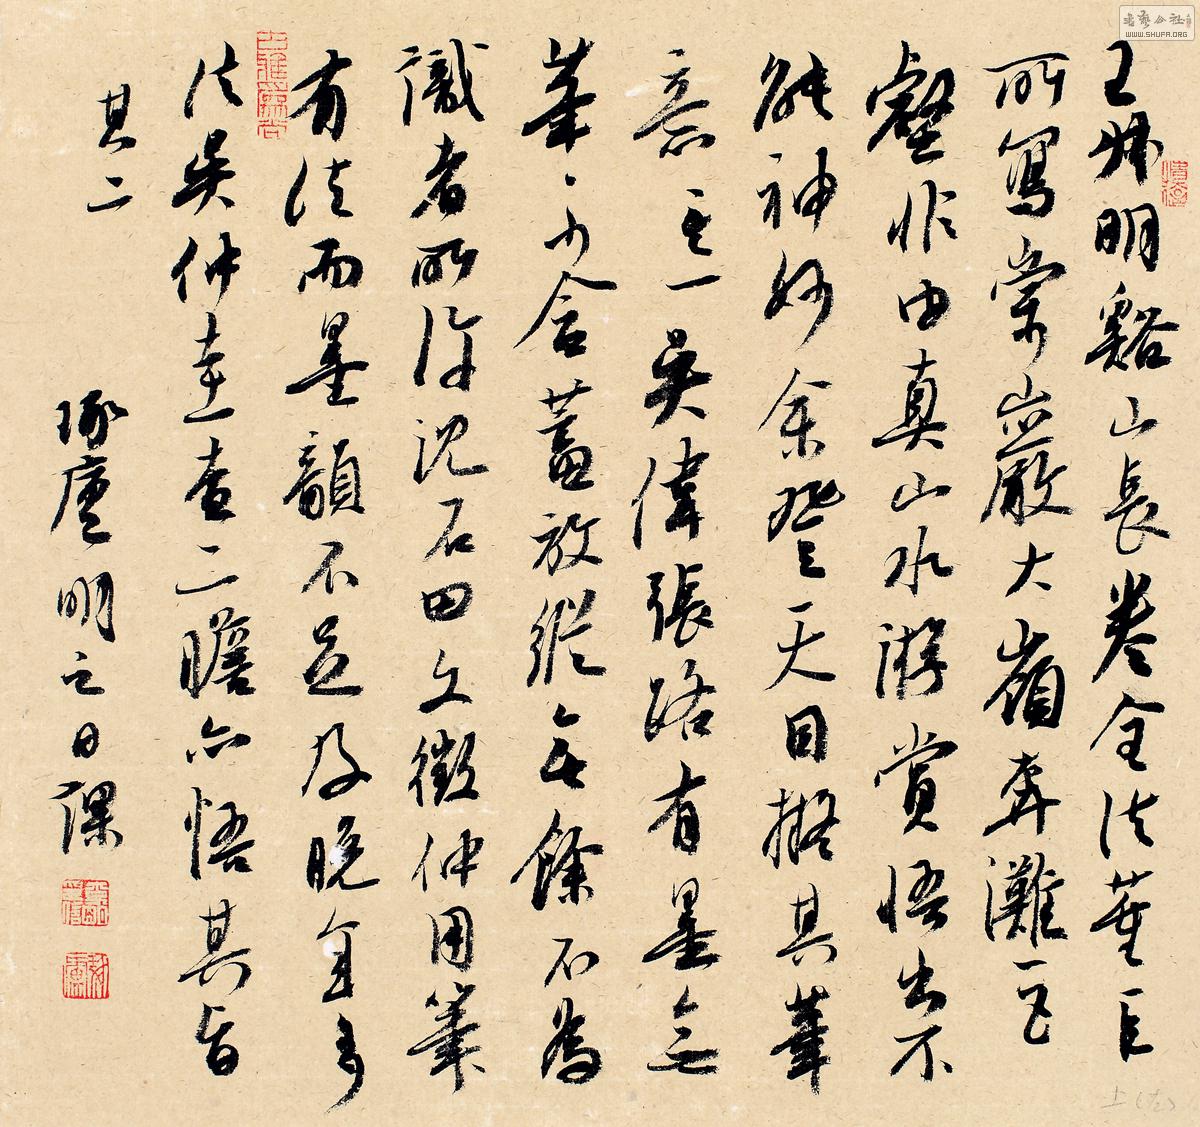 王叔明谿山長卷全法董巨
所寫崇巖大嶺奔灘巨
壑非由真山水游賞悟出不
能神妙余登天目擬其筆
意 吴偉張路有墨無
筆筆少含蓄放縱無餘不為
識者所 沈石田文徵仲用筆
有法而墨韻不足及晚年多
法吴仲圭查二瞻亦悟其旨
其二
琢廔明之日課
书艺公社
WWW.SHUFA.ORG
上(左)